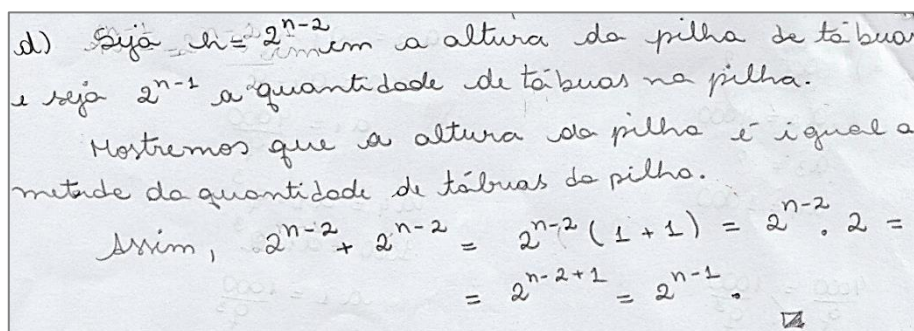 d) Seja h = 2^{n-2} cm a altura da pilha de tábuas
e seja 2^{n-1} a quantidade de tábuas na pilha.
Mostremos que a altura da pilha é igual a
metade da quantidade de tábuas da pilha.
Assim, 2^{n-2} + 2^{n-2} = 2^{n-2} (1 + 1) = 2^{n-2} . 2 =
= 2^{n-2+1} = 2^{n-1} .